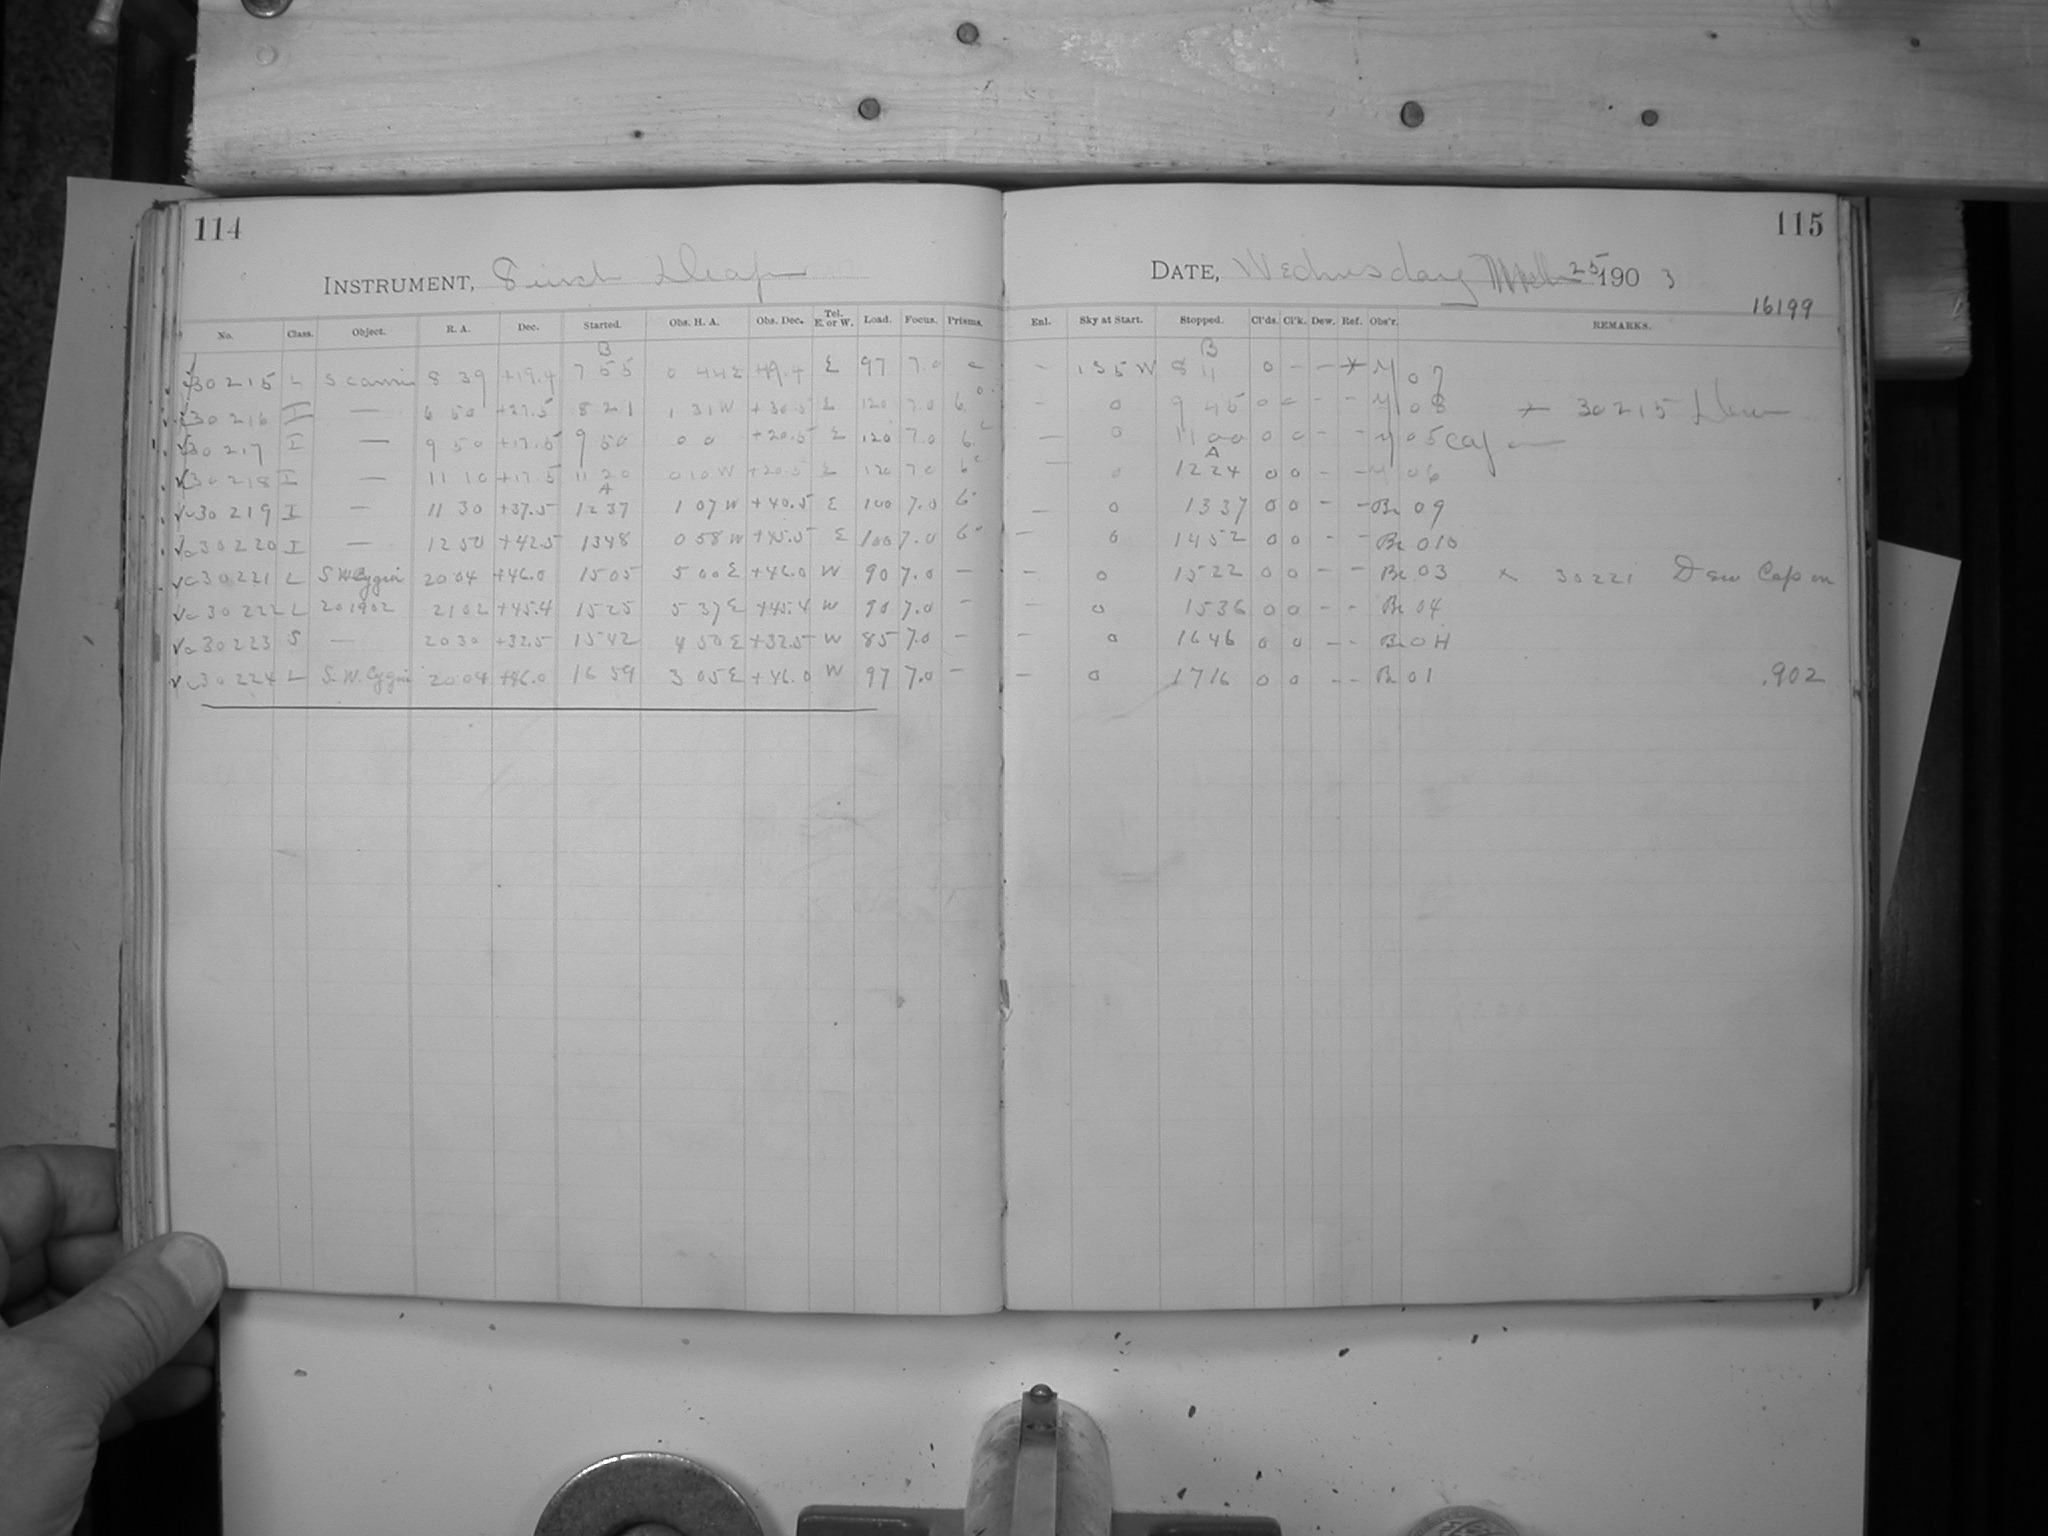 114
INSTRUMENT, 8 inch Drap
No. Class. Object. R. A. Dec. Started. Obs. H. A. Obs. Dec. Tel. E. or W. Load. Focus. Prisms.
B
30215 L S Cancri 8 39 +19.4 7 55 0 44 E +19.4 E 97 7.0 –
30216 I — 6 50 +27.5 8 21 1 31 W +30.5 E 120 7.0 6
30217 I — 9 50 +17.5 9 50 0 0 +20.5 E 120 7.0 6
30218 I — 11 10 +17.5 11 20 0 10 W +20.5 E 120 7.0 6
A
30219 I — 11 30 +37.5 12 37 1 07 W +40.5 E 100 7.0 6
30220 I — 12 50 +42.5 13 48 0 58 W +45.5 E 100 7.0 6
30221 L S W Cygni 20 04 +46.0 15 05 5 00 E +46.0 W 90 7.0 –
30222 L 201902 21 02 +45.4 15 25 5 37 E +45.4 W 90 7.0 –
30223 S — 20 30 +32.5 15 42 4 50 E +32.5 W 85 7.0 –
30224 L S. W. Cygni 20 04 +46.0 16 59 3 05 E +46.0 W 97 7.0 –
115
DATE, Wednesday Mch 25 1903
16199
Enl. Sky at Start. Stopped. Cl'ds. Cl'k. Dew. Ref. Obs'r. REMARKS.
B
– 1 35 W 8 11 0 – – * M 07
– 0 9 45 0 0 – – M 08 * 30215 Dew
– 0 11 00 0 0 – – M 05 Cap on
A
– 0 12 24 0 0 – – M 06
– 0 13 37 0 0 – – Br 09
– 0 14 52 0 0 – – Br 010
– 0 15 22 0 0 – – Br 03 × 30221 Dew Cap on
– 0 15 36 0 0 – – Br 04
– 0 16 46 0 0 – – Br 0H
– 0 17 16 0 0 – – Br 01 .902